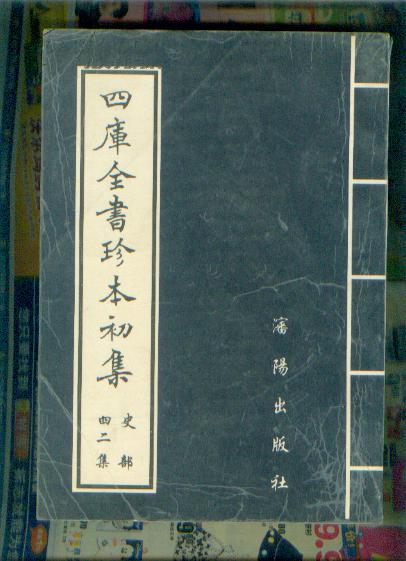 四庫全書珍本初集
史部
四二集
瀋陽出版社